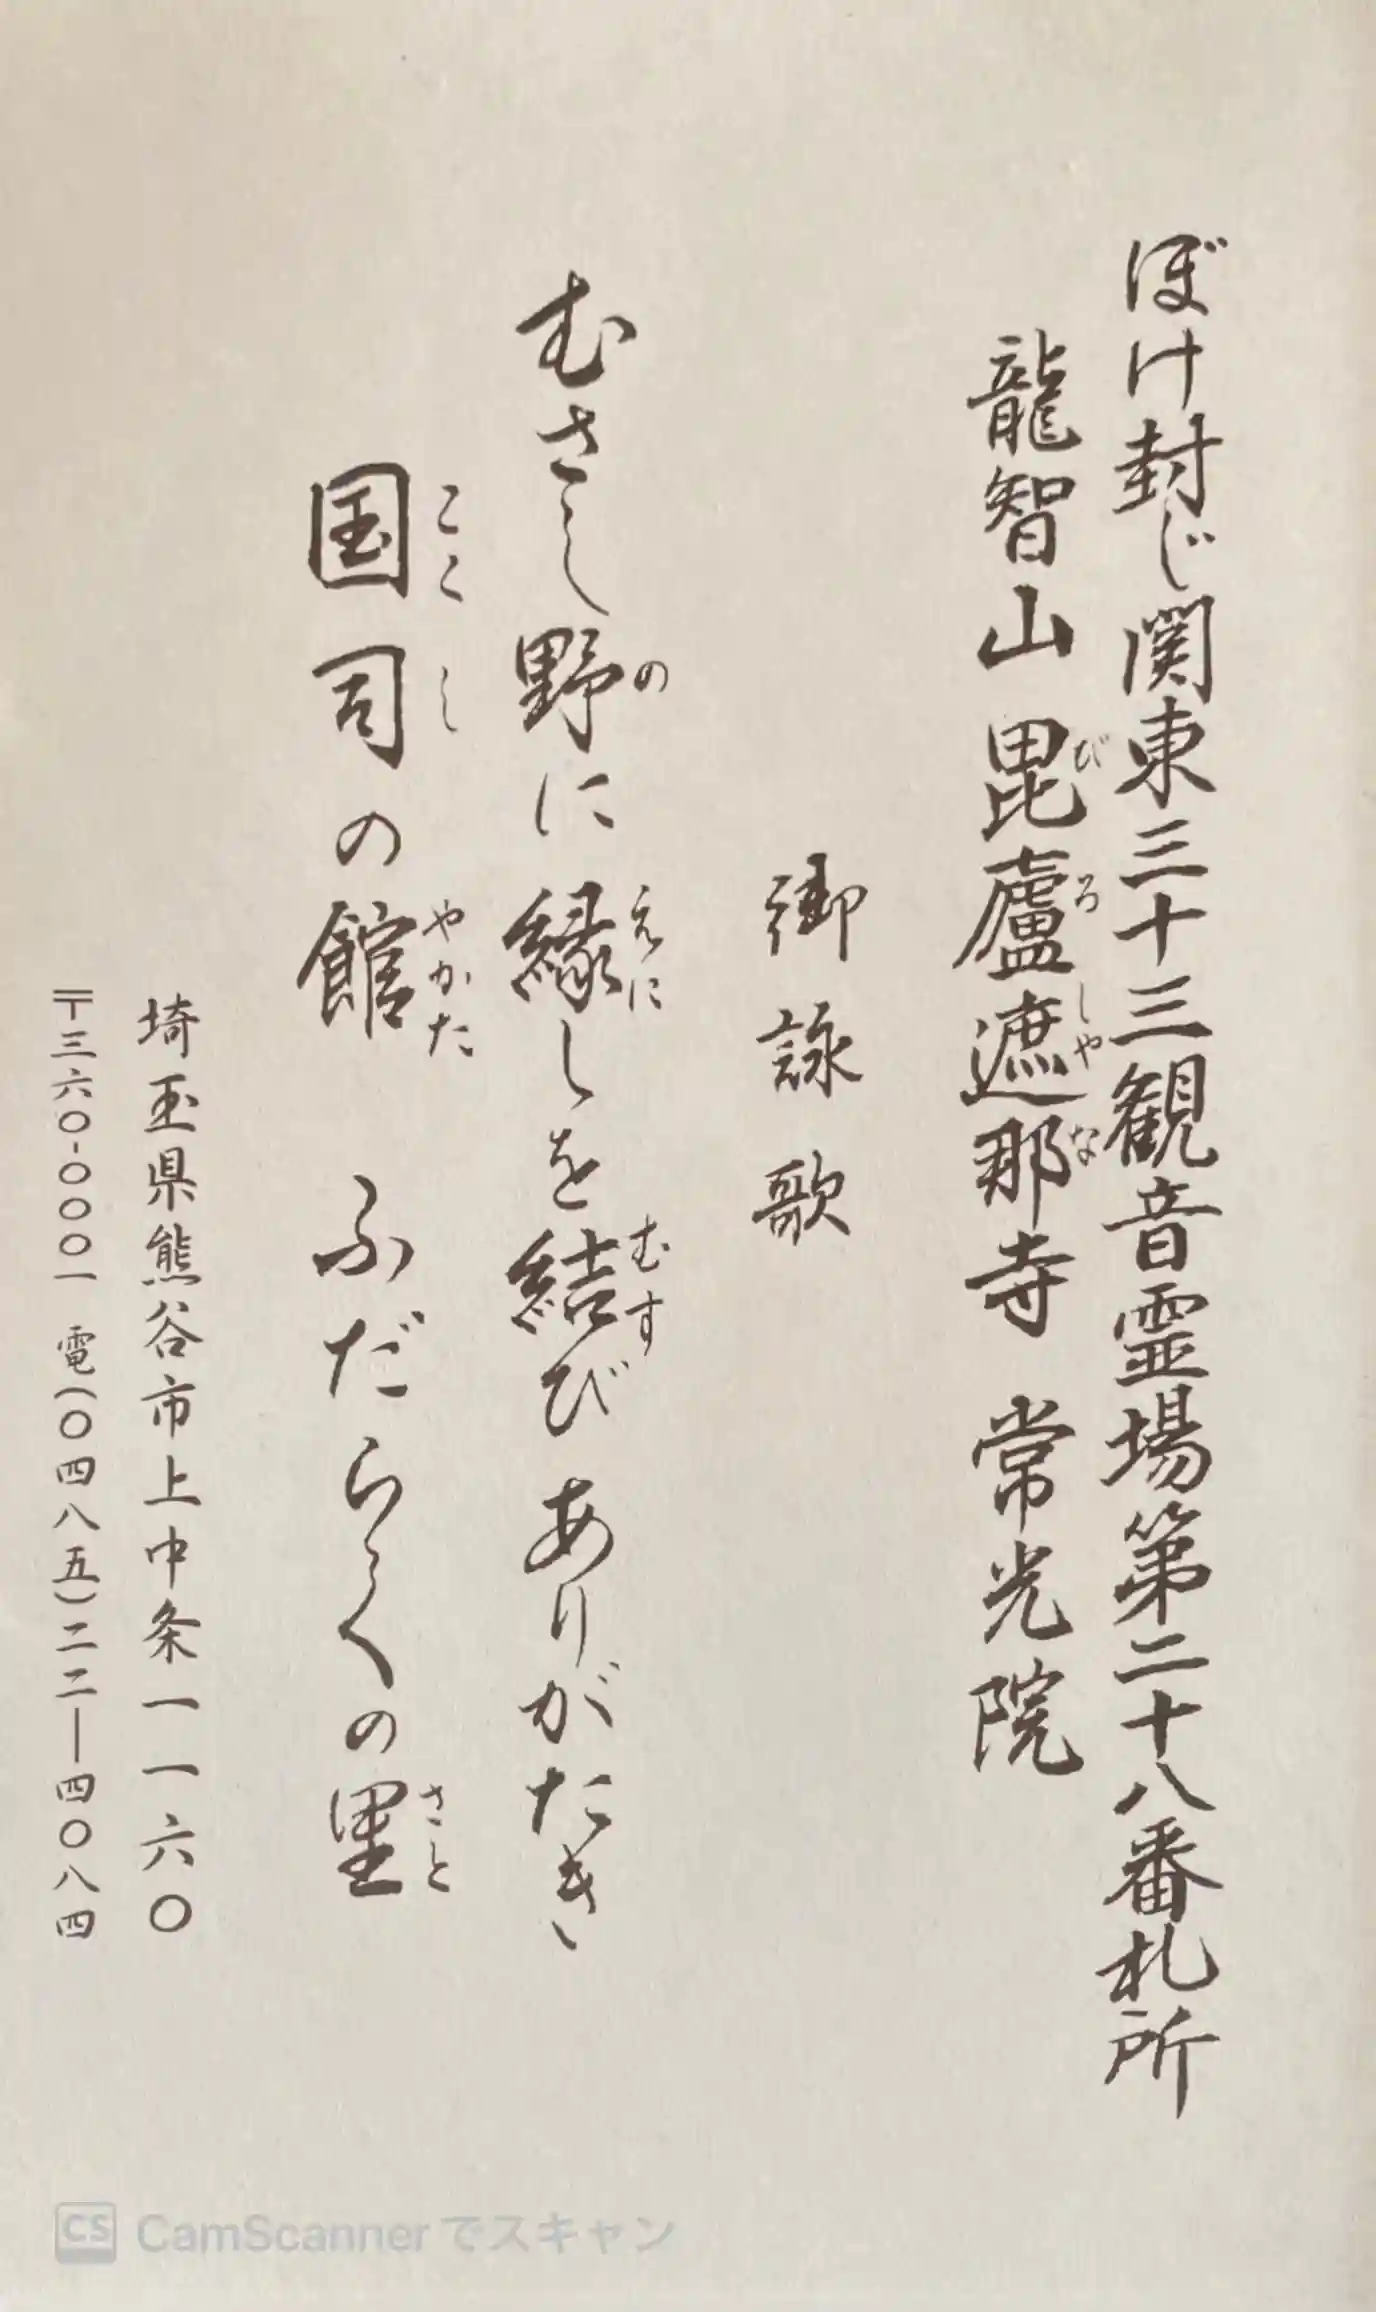 ぼけ封じ関東三十三観音霊場第二十八番札所
龍智山 毘廬遮那寺 常光院
びろしやな
御詠歌
むさし野に縁しを結び ありがたき
の えに むす
国司の館 ふだらくの里
ここし やかた さと
埼玉県熊谷市上中条一一六〇
〒三六〇-〇〇〇一 電(〇四八五)二二―四〇八四
CS CamScannerでスキャン